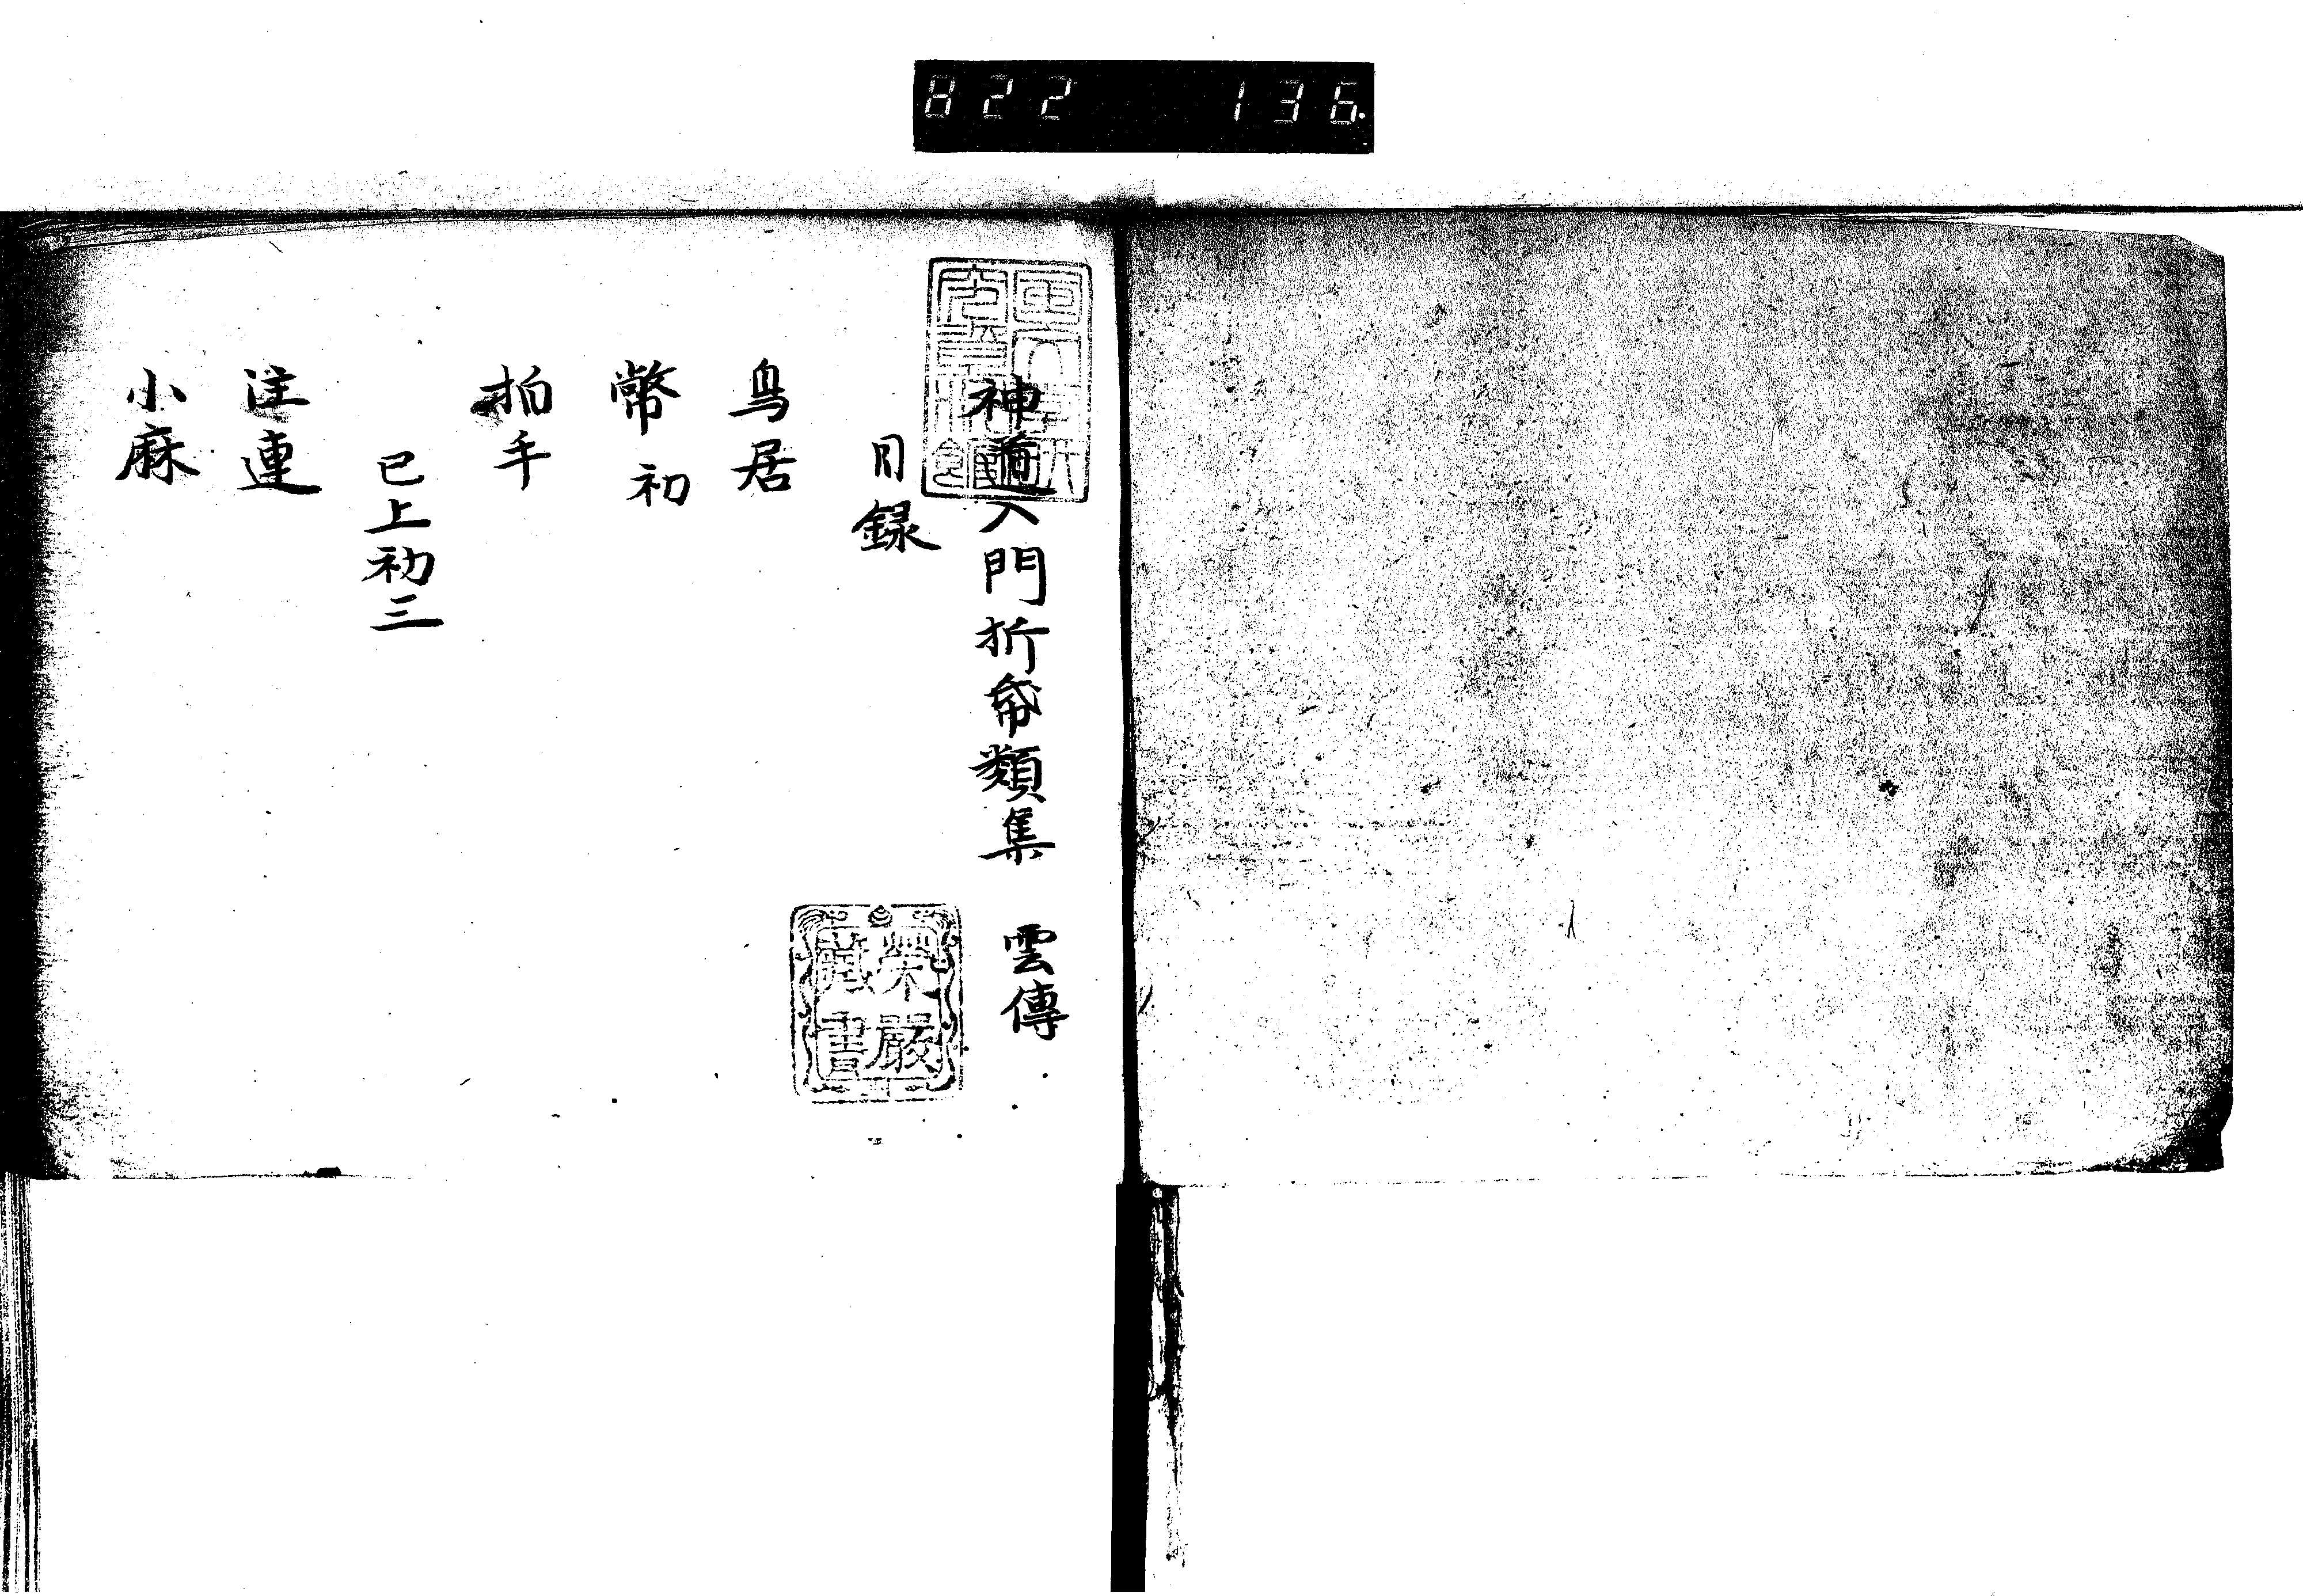 822 136
神道入門折帋類集 雲傳
目録
鳥居
幣 初
拍手
已上初三
注連
小麻
榮嚴
藏書